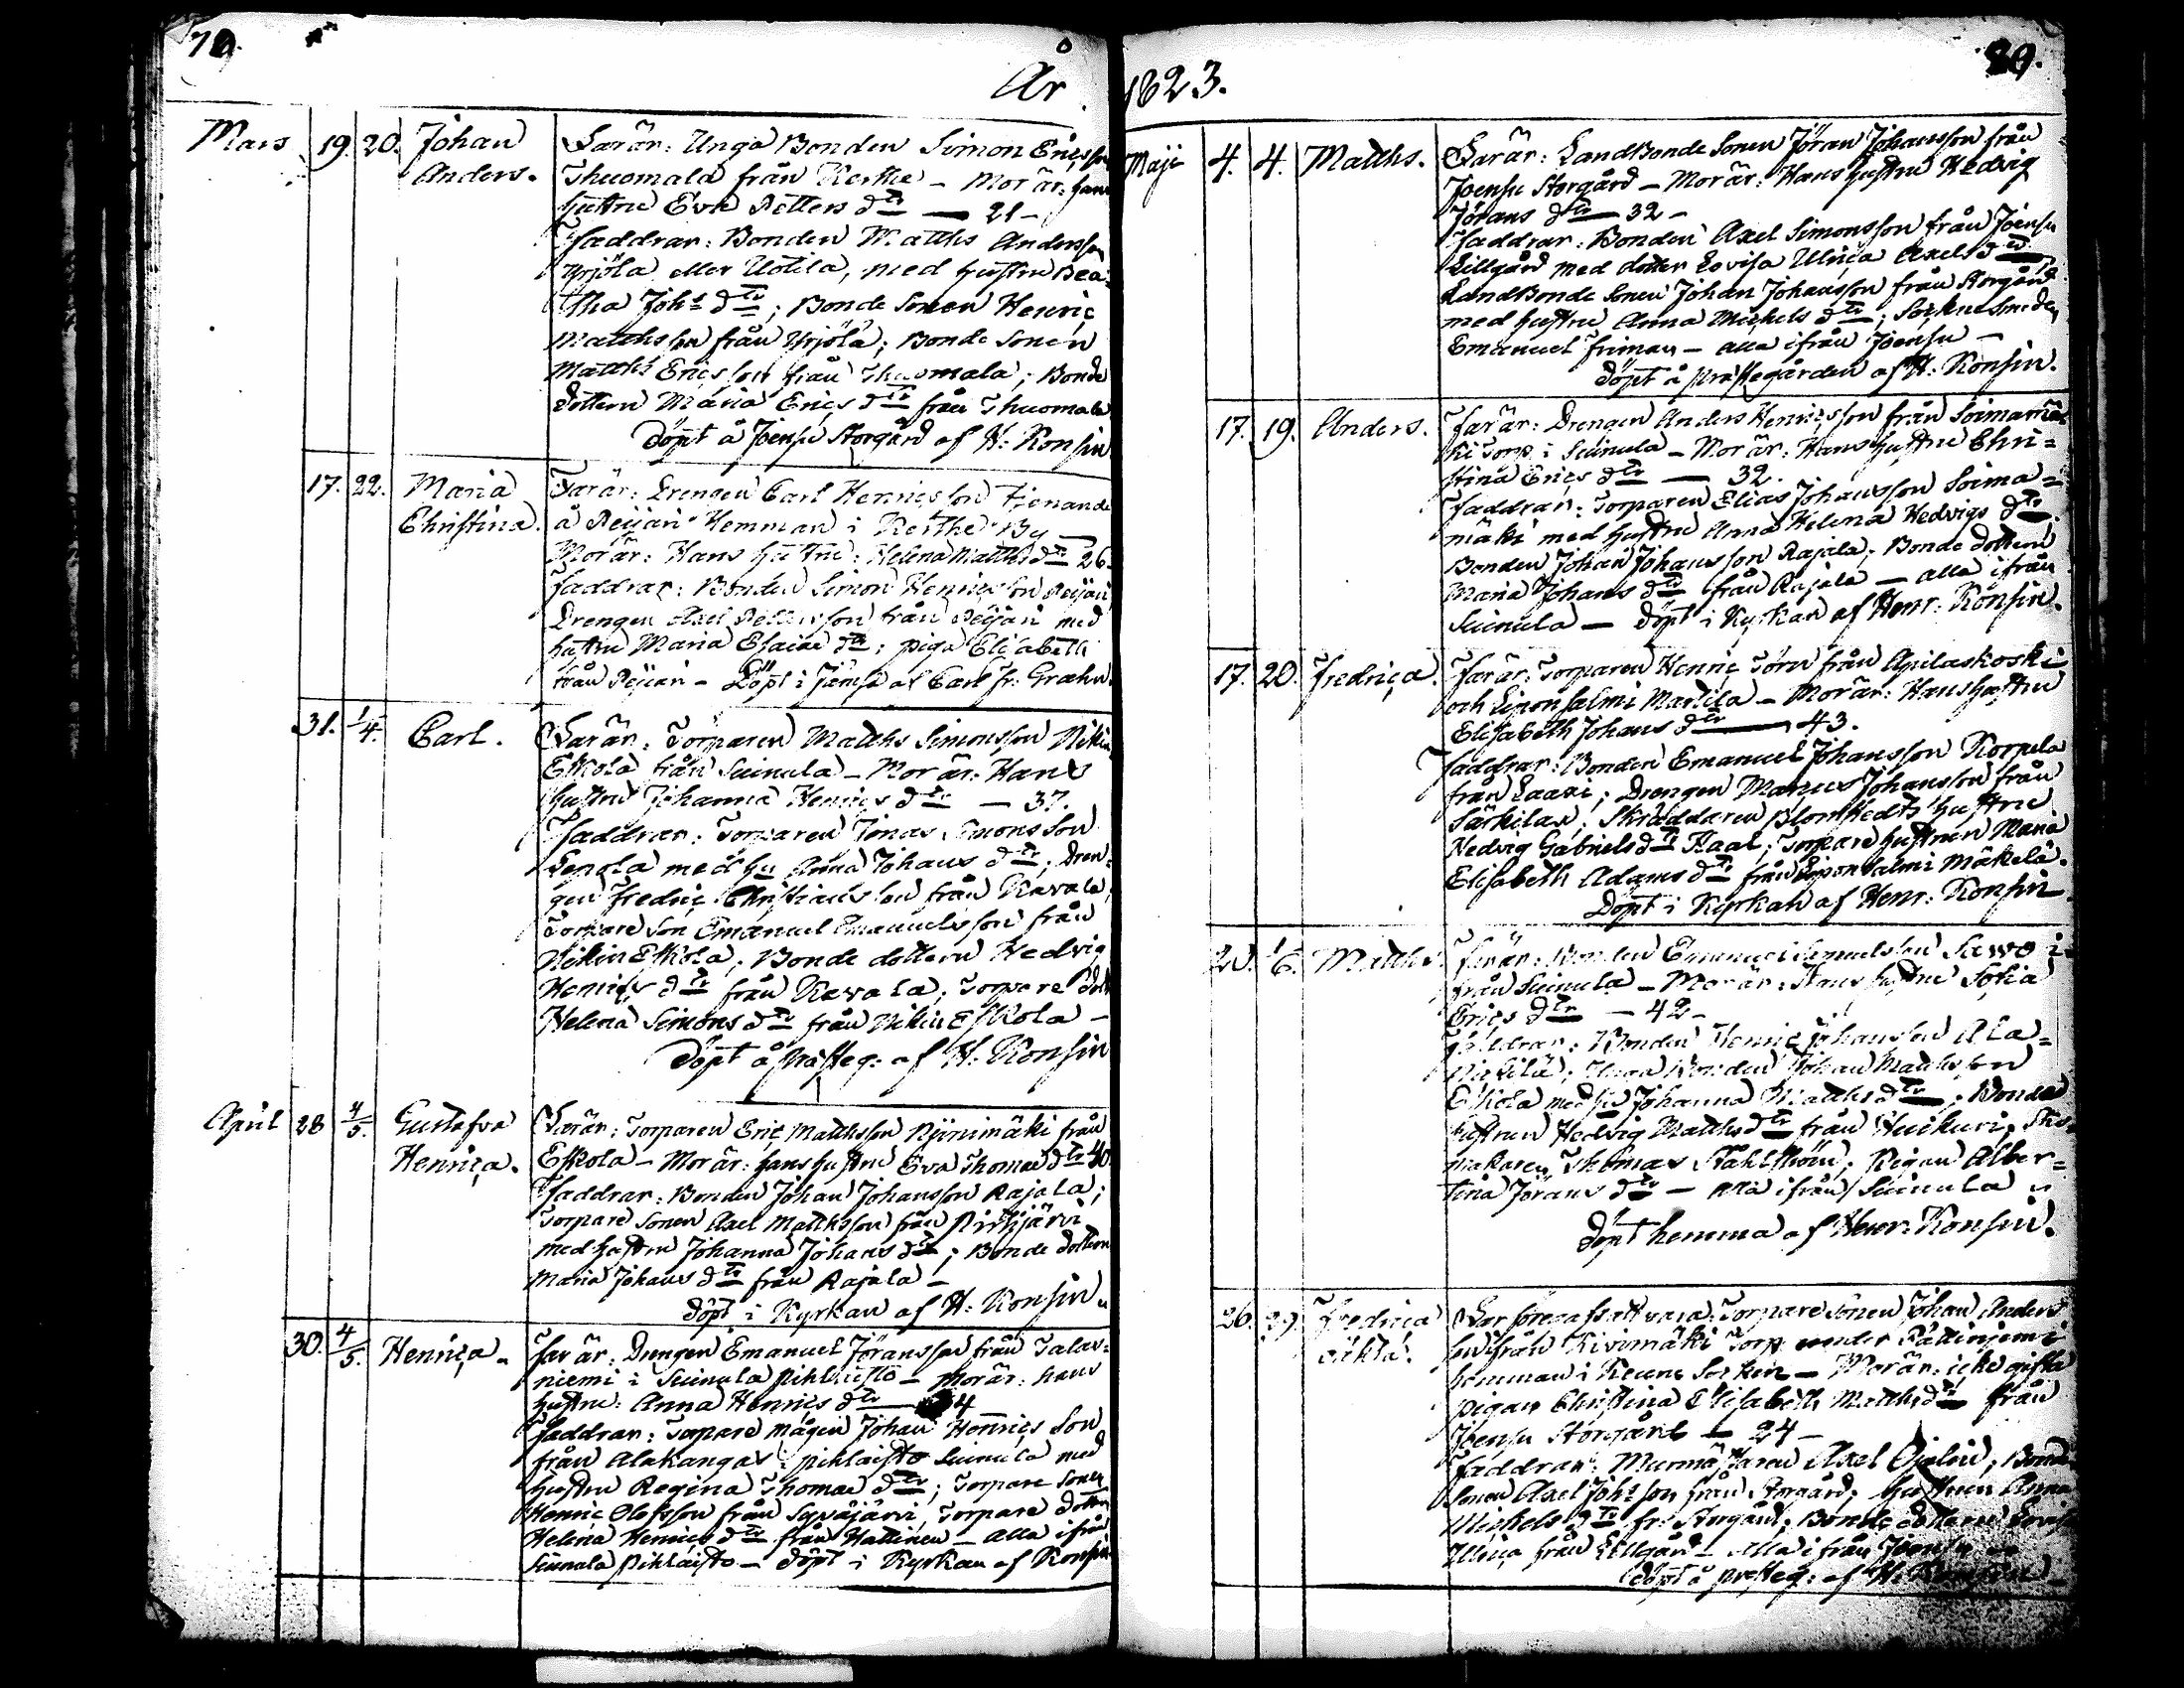 79.
År
Mars 19. 20. Johan Farär: Unga Bonden Simon Ericsson
Anders. Thuomala från Kerthe – Morär: hans
hustru Eva Petters dtr — 21 –
Faddrar: Bonden Matths Andersson
Yrjölä eller Uotila, med hustru Bea-
tha Johs dtr; Bonde Sonen Henric
Mathsson från Yrjölä; Bonde Sonen
Matths Ericsson från Thuomala; Bonde
dottern Maria Erics dtr från Thuomala
Döpt å Joensu Storgård af H: Konsin
17. 22. Maria Farär: Drengen Carl Henricsson tienande
Christina. å Reijari Hemman i Kerthe By —
Morär: Hans hustru: Helena Matths dtr 26.
Faddrar: Bonden Simon Henricsson Reijari
Drengen Axel Pettersson från Reijari med
hustru Maria Esaiae dtr; piga Elisabeth
från Reijari – Döpt i Jämsä af Carl Fr: Græhn.
31. 1/4. Carl. Farär: Torparen Matths Simonsson Nikin
Eskola från Suinula – Morär: Hans
hustru Johanna Henrics dtr — 37.
Faddrar: Torparen Jonas Simonsson
Lepola med hu Anna Johans dtr; Dren-
gen Fredric Christiansson från Kavala,
Torpare Son Emanuel Emanuelsson från
Nikin Eskola, Bonde dottern Hedvig
Henrics dtr från Kavala; Torpare dott
Helena Simons dtr från Nikin Eskola –
Döpt å Præsteg: af H. Konsin
April 28 4/5. Gustafva Farär: Torparen Eric Matthsson Nijnimäki från
Henrica. Eskola – Morär: hans hustru Eva Thomae dtr 40.
Faddrar: Bonden Johan Johansson Rajala;
Torpare Sonen Axel Matthsson från Pirttijärvi
med hustru Johanna Johans dtr; Bonde dottern
Maria Johans dtr från Rajala –
döpt i Kyrkan af H: Konsin
30. 4/5. Henrica. Far är: Drengen Emanuel Jöransson från Talas-
niemi i Suinula Pihlaisto – Morär: hans
hustru: Anna Henrics dtr — 4
Faddrar: Torpare mågen Johan Henrics Son
från Alakangas i Pihlaisto Suinula med
hustru Regina Thomae dtr; Torpare Sonen
Henric Olofsson från Syväjärvi, Torpare dottern
Helena Henrics dtr från Hattinen – alla ifrån
Suinula Pihlaisto – döpt i Kyrkan af Konsin
1823.
Maji 4. 4. Matths. Farär: Landbonde Sonen Jöran Johansson från
Joensu Storgård – Morär: Hans hustru Hedvig
Jörans dtr — 32 –
Faddrar: Bonden Axel Simonsson från Joensu
Lillgård med dotter Lovisa Ulrica Axels dtr
Landbonde Sonen Johan Johansson från Storgård
med hustru Anna Michels dtr; Sockne Smeden
Emanuel Friman – alla ifrån Joensu –
döpt å Prästegården af H: Konsin.
17. 19. Anders. Far är: Drengen Anders Henricsson från Soimamä-
ki Torp i Suinula – Morär: Hans hustru Chri-
stina Erics dtr — 32.
Faddrar: Torparen Elias Johansson Soima-
mäki med hustru Anna Helena Hedvigs dtr
Bonden Johan Johansson Rajala; Bonde dottern
Maria Johans dtr från Rajala — alla ifrån
Suinula — döpt i Kyrkan af Henr: Konsin.
17. 20. Fredrica. Farär: Torparen Henric Törn från Apilaskoski
och Eiponsalmi Marttila – Morär: Hans hustru
Elisabeth Johans dtr — 43.
Faddrar: Bonden Emanuel Johansson Korpela
från Laaxi; Drengen Matths Johansson från
Särkilax; Skräddaren Blomstedts hustru
Hedvig Gabriels dtr Haal; Torpare hustrun Maria
Elisabeth Adams dtr från Eiponsalmi Mäkelä.
Döpt i Kyrkan af Henr: Konsin
1/6. Matths. Far är: Bonden Emanuel Samuelsson Sawo i
från Suinula – Morär: Hans hustru Sofia
Erics dtr — 42 –
Faddrar: Bonden Henric Johansson Ala-
Unga Bonden Johan Matthsson
Eskola med hu Johanna Matths dtr; Bonde
hustrun Hedvig Matths dtr från Huikuri; Sko-
makaren Thomas Ståhlström; Pigan Alber-
tina Jörans dtr — alla ifrån Suinula
döpt hemma af Henr: Konsin.
26. 29. Fredrica Far föregafs att vara: Torpare Sonen Johan Anders
oäkta. son från Kivimäki Torp under
hemman i Socken — Morär: icke gifta
pigan Christina Elisabeth Matths dtr från
Joensu Storgård — 24 –
Faddrar: Murmästaren Axel Öjelin; Bonde
Sonen Axel Johsson från Storgård; hustrun Anna
Michels dtr fr: Storgård; Bonde dottern Lovisa
Ulrica från Lillgård – Alla ifrån Joensu
döpt å Præsteg: af H: Konsin